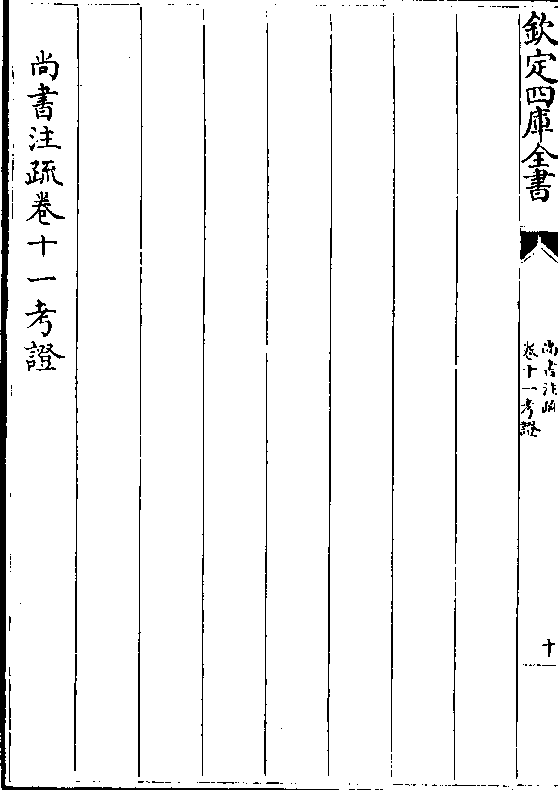 欽定四庫全書
尚書注疏
卷十一考證
十
尚書注疏卷十一考證